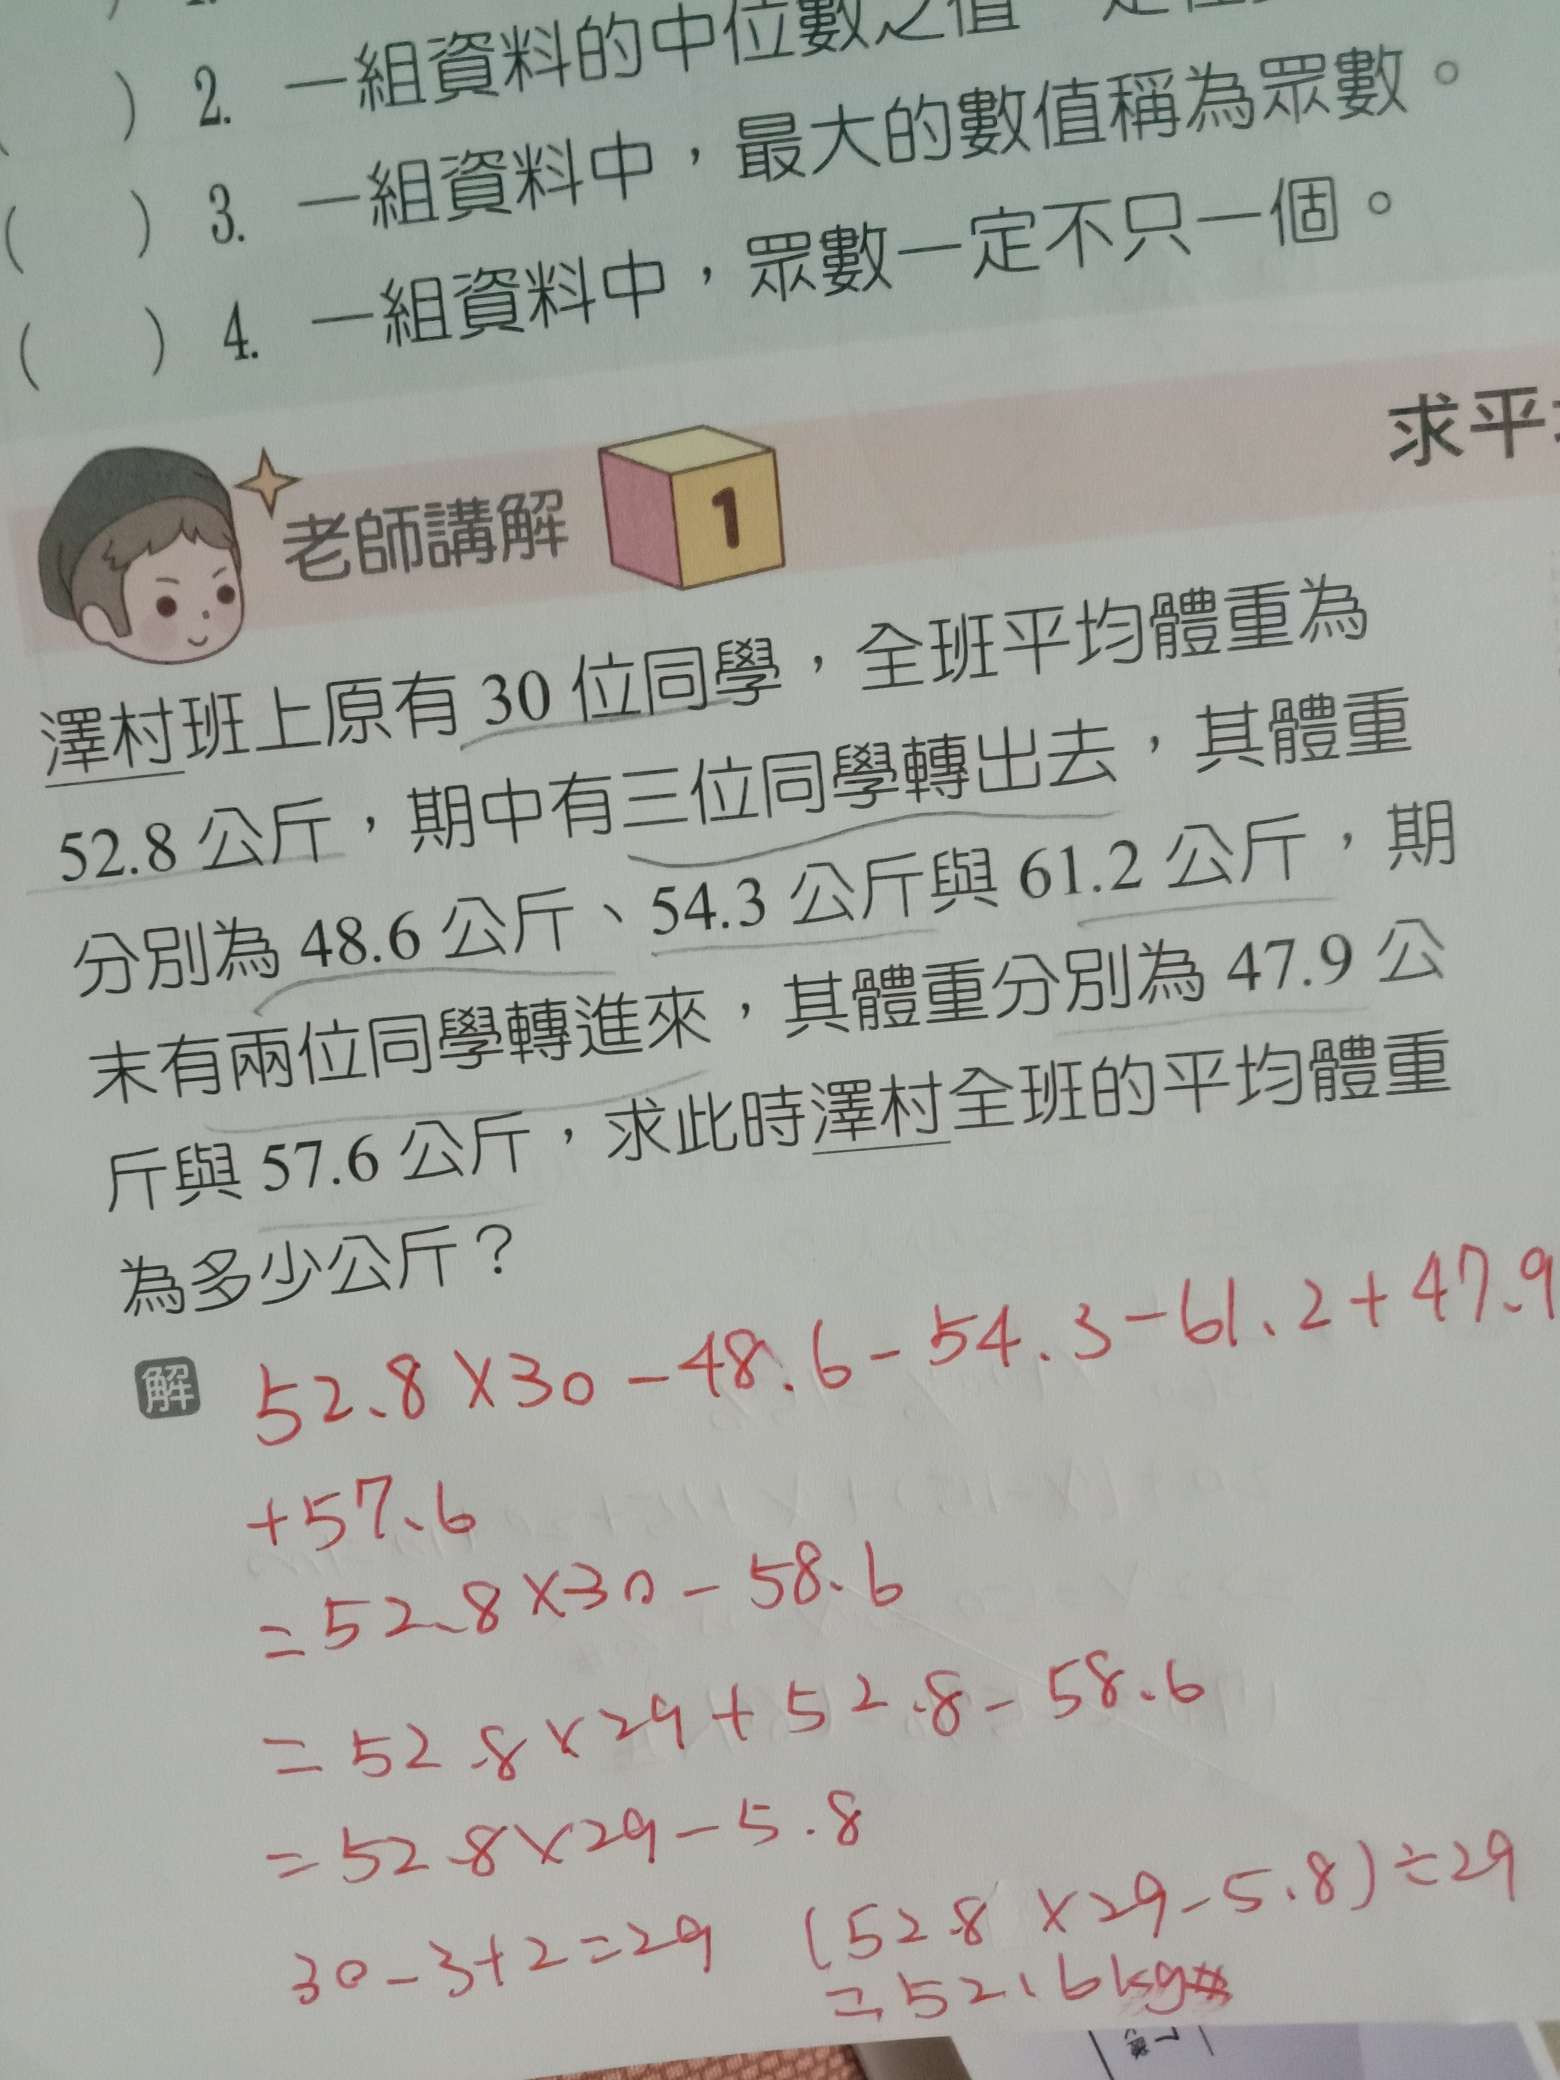 ) 2. 一組資料的中位數之值一定
( ) 3. 一組資料中，最大的數值稱為眾數。
( ) 4. 一組資料中，眾數一定不只一個。
求平
老師講解 1
澤村班上原有 30 位同學，全班平均體重為
52.8 公斤，期中有三位同學轉出去，其體重
分別為 48.6 公斤、54.3 公斤與 61.2 公斤，期
末有兩位同學轉進來，其體重分別為 47.9 公
斤與 57.6 公斤，求此時澤村全班的平均體重
為多少公斤？
解 52.8×30-48.6-54.3-61.2+47.9
+57.6
=52.8×30-58.6
=52.8×29+52.8-58.6
=52.8×29-5.8
30-3+2=29 (52.8×29-5.8)÷29
=52.6kg#